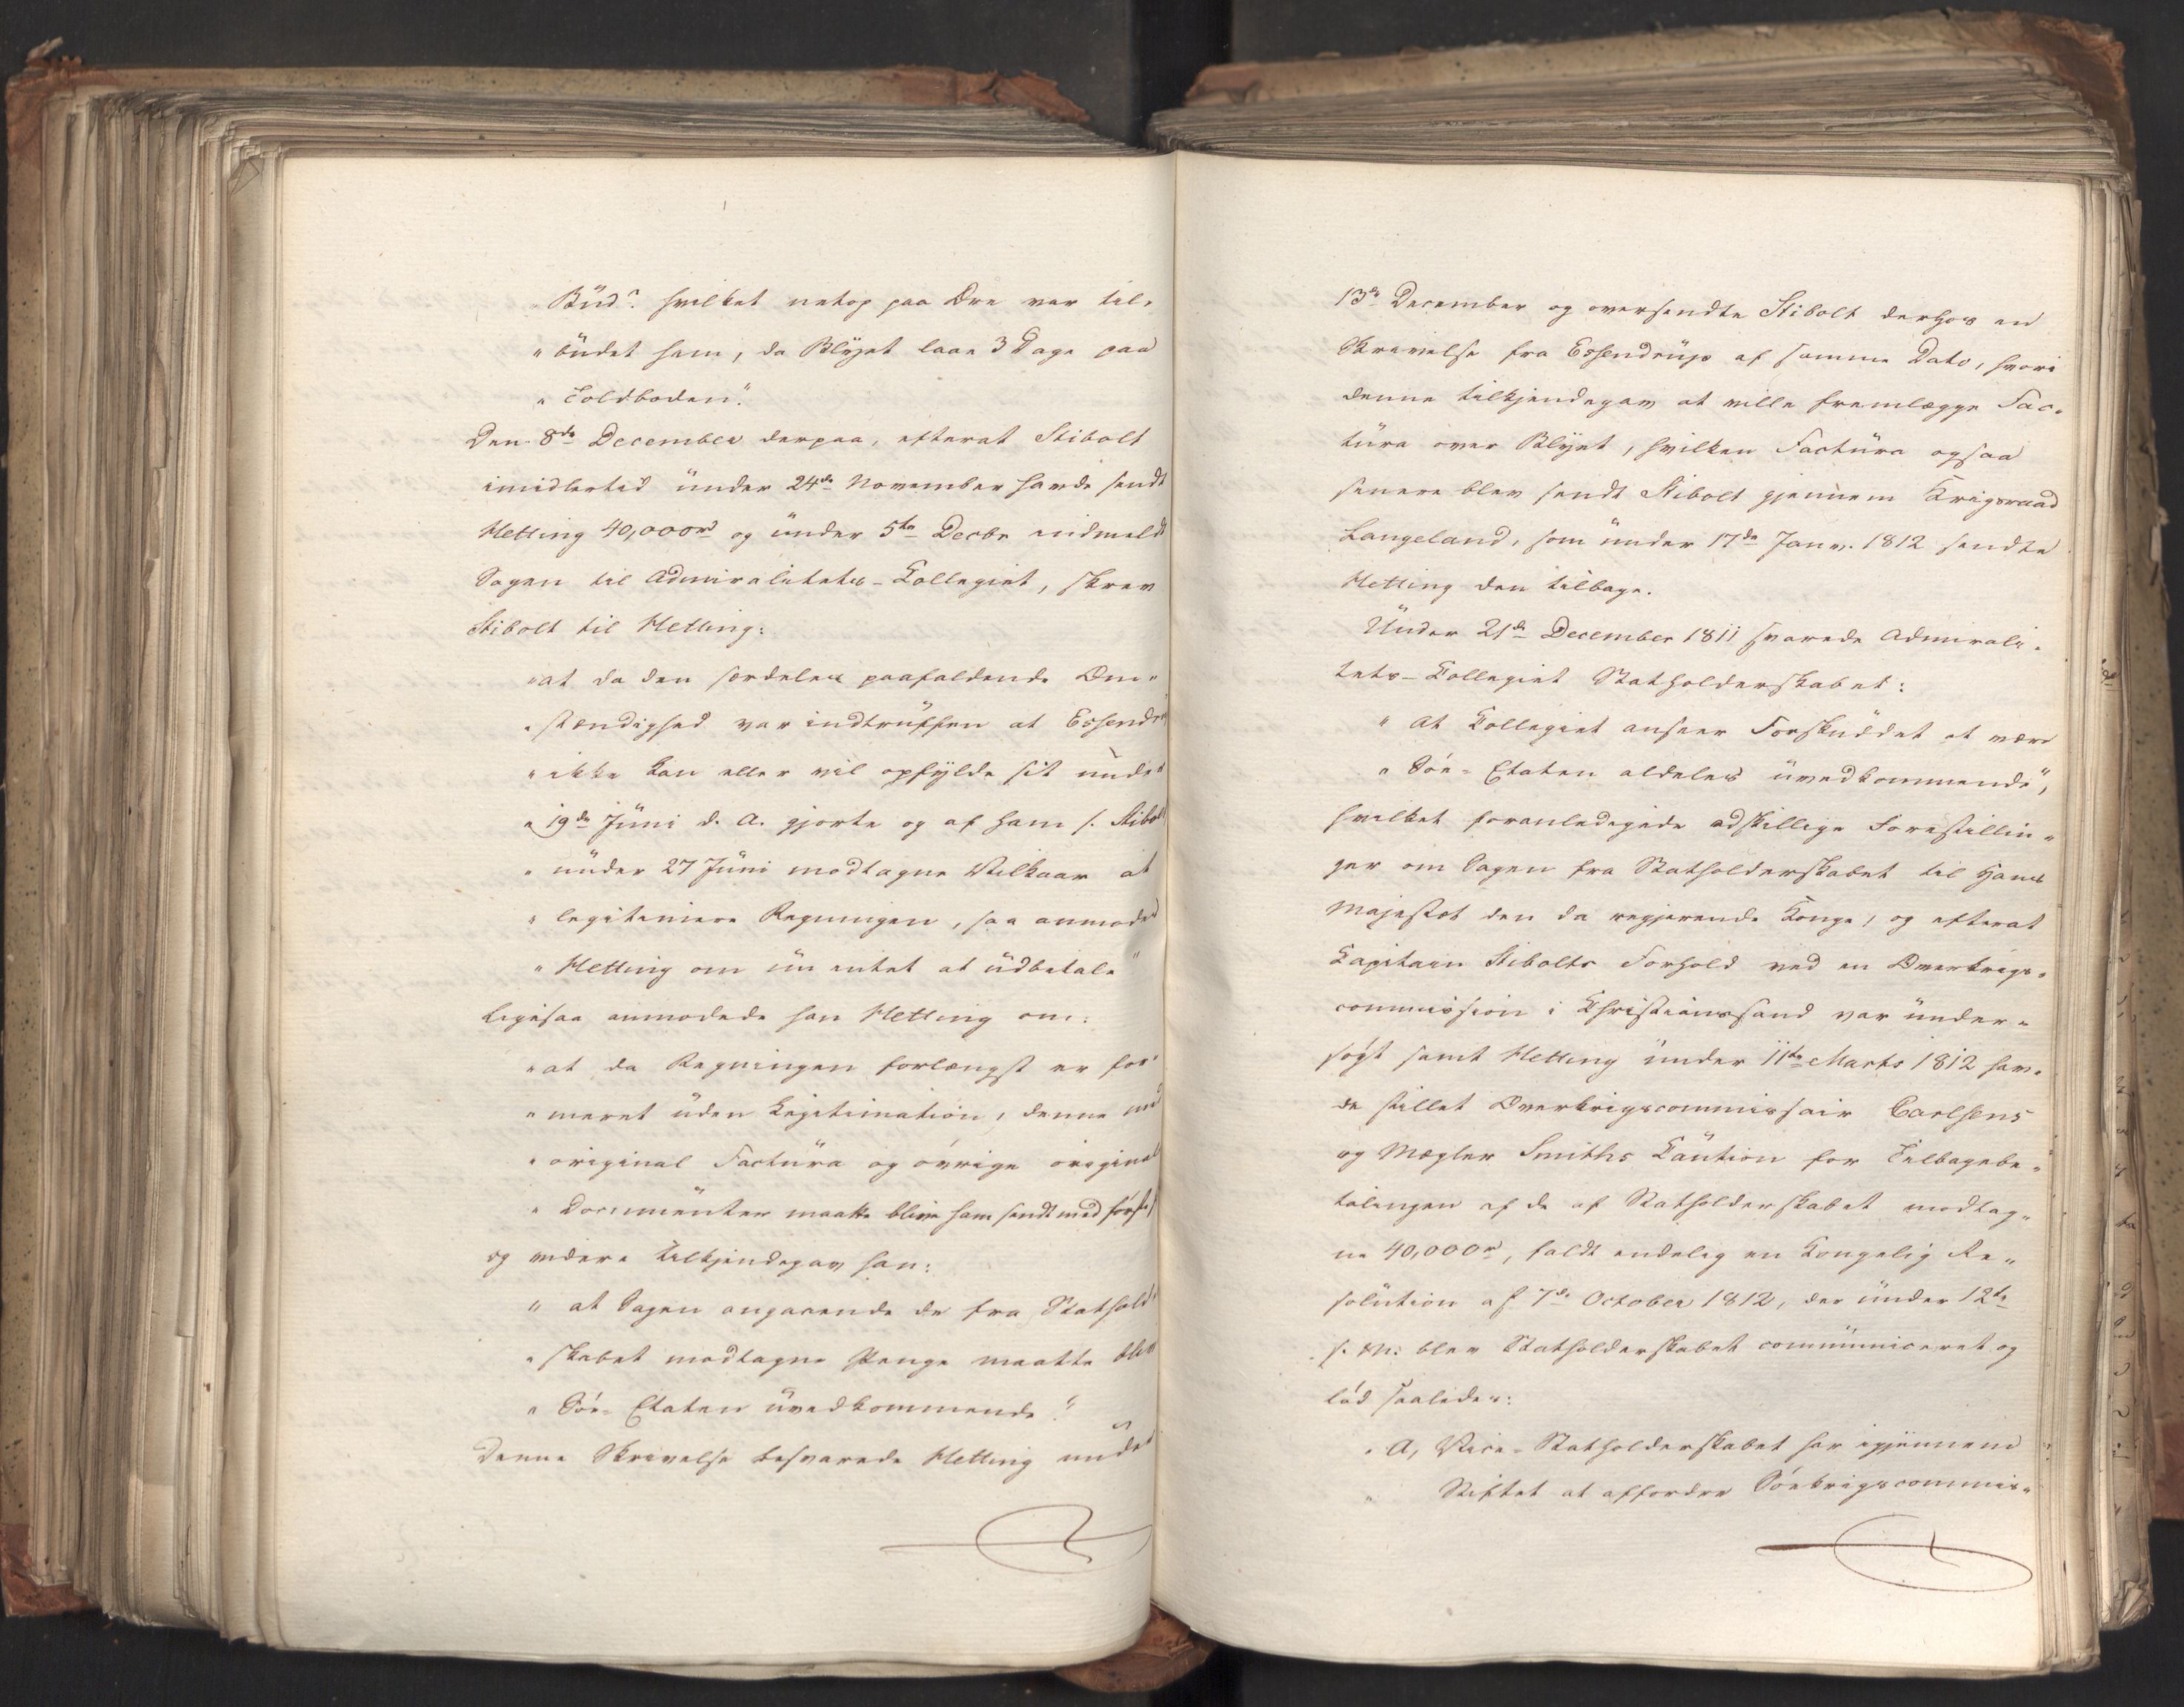 "Bud". hvilket netop paa Øre var til-
"budet ham, da Blyet laae 3 Dage paa
"Toldboden".
Den 8de December derpaa, efterat Stibolt
imidlertid under 24de November havde sendt
Hetting 40,000rd og under 5te Decbr indmeldt
Sagen til Admiralitets-Collegiet, skrev
Stibolt til Hetting:
"at da den særdeles paafaldende Om-
"stændighed var indtruffen at Essendr
"ikke kan eller vil opfylde sit under
"19de Juni d. A. gjorte og af ham /: Stibolt
"under 27 Juni modtagne Vilkaar at
"legitimere Regningen, saa anmodes
"Hetting om intet at udbetale"
ligesaa anmodede han Hetting om:
"at da Regningen forlængst er for-
"meret uden Legitimation, denne med
"original Factura og øvrige original
"Documenter maatte blive ham sendt med første
og videre tilkjendegav han:
"at Sagen angaaende de fra Stathold-
"skabet modtagne Penge maatte blive
"Søe-Etaten uvedkommende."
Denne Skrivelse besvarede Hetting under
13de December og oversendte Stibolt derhos en
Skrivelse fra Essendrup af samme Dato, hvori
denne tilkjendegav at ville fremlægge Fac-
tura over Blyet, hvilken Factura ogsaa
senere blev sendt Stibolt gjennem Krigsraad
Langeland, som under 17de Janv. 1812 sendte
Hetting den tilbage.
Under 21de December 1811 svarede Admirali-
tets-Collegiet Statholderskabet:
"At Collegiet anseer Forskuddet at være
"Søe-Etaten aldeles uvedkommende",
hvilket foranledigede adskillige Forestillin-
ger om Sagen fra Statholderskabet til Hans
Majestæt den da regjerende Konge, og efterat
Capitain Stibolts Forhold ved en Overkrigs-
commission i Christianssand var under-
søgt samt Hetting under 11te Marts 1812 hav-
de stillet Overkrigscommissair Carlsens
og Mægler Smiths Caution for Tilbagebe-
talingen af de af Statholderskabet modtag-
ne 40,000rd, faldt endelig en Kongelig Re-
solution af 7de October 1812, der under 12te
s. M: blev Statholderskabet communiceret og
lød saaledes:
"A, Vice-Statholderskabet har igjennem
" Stiftet at affordre Søekrigscommis-